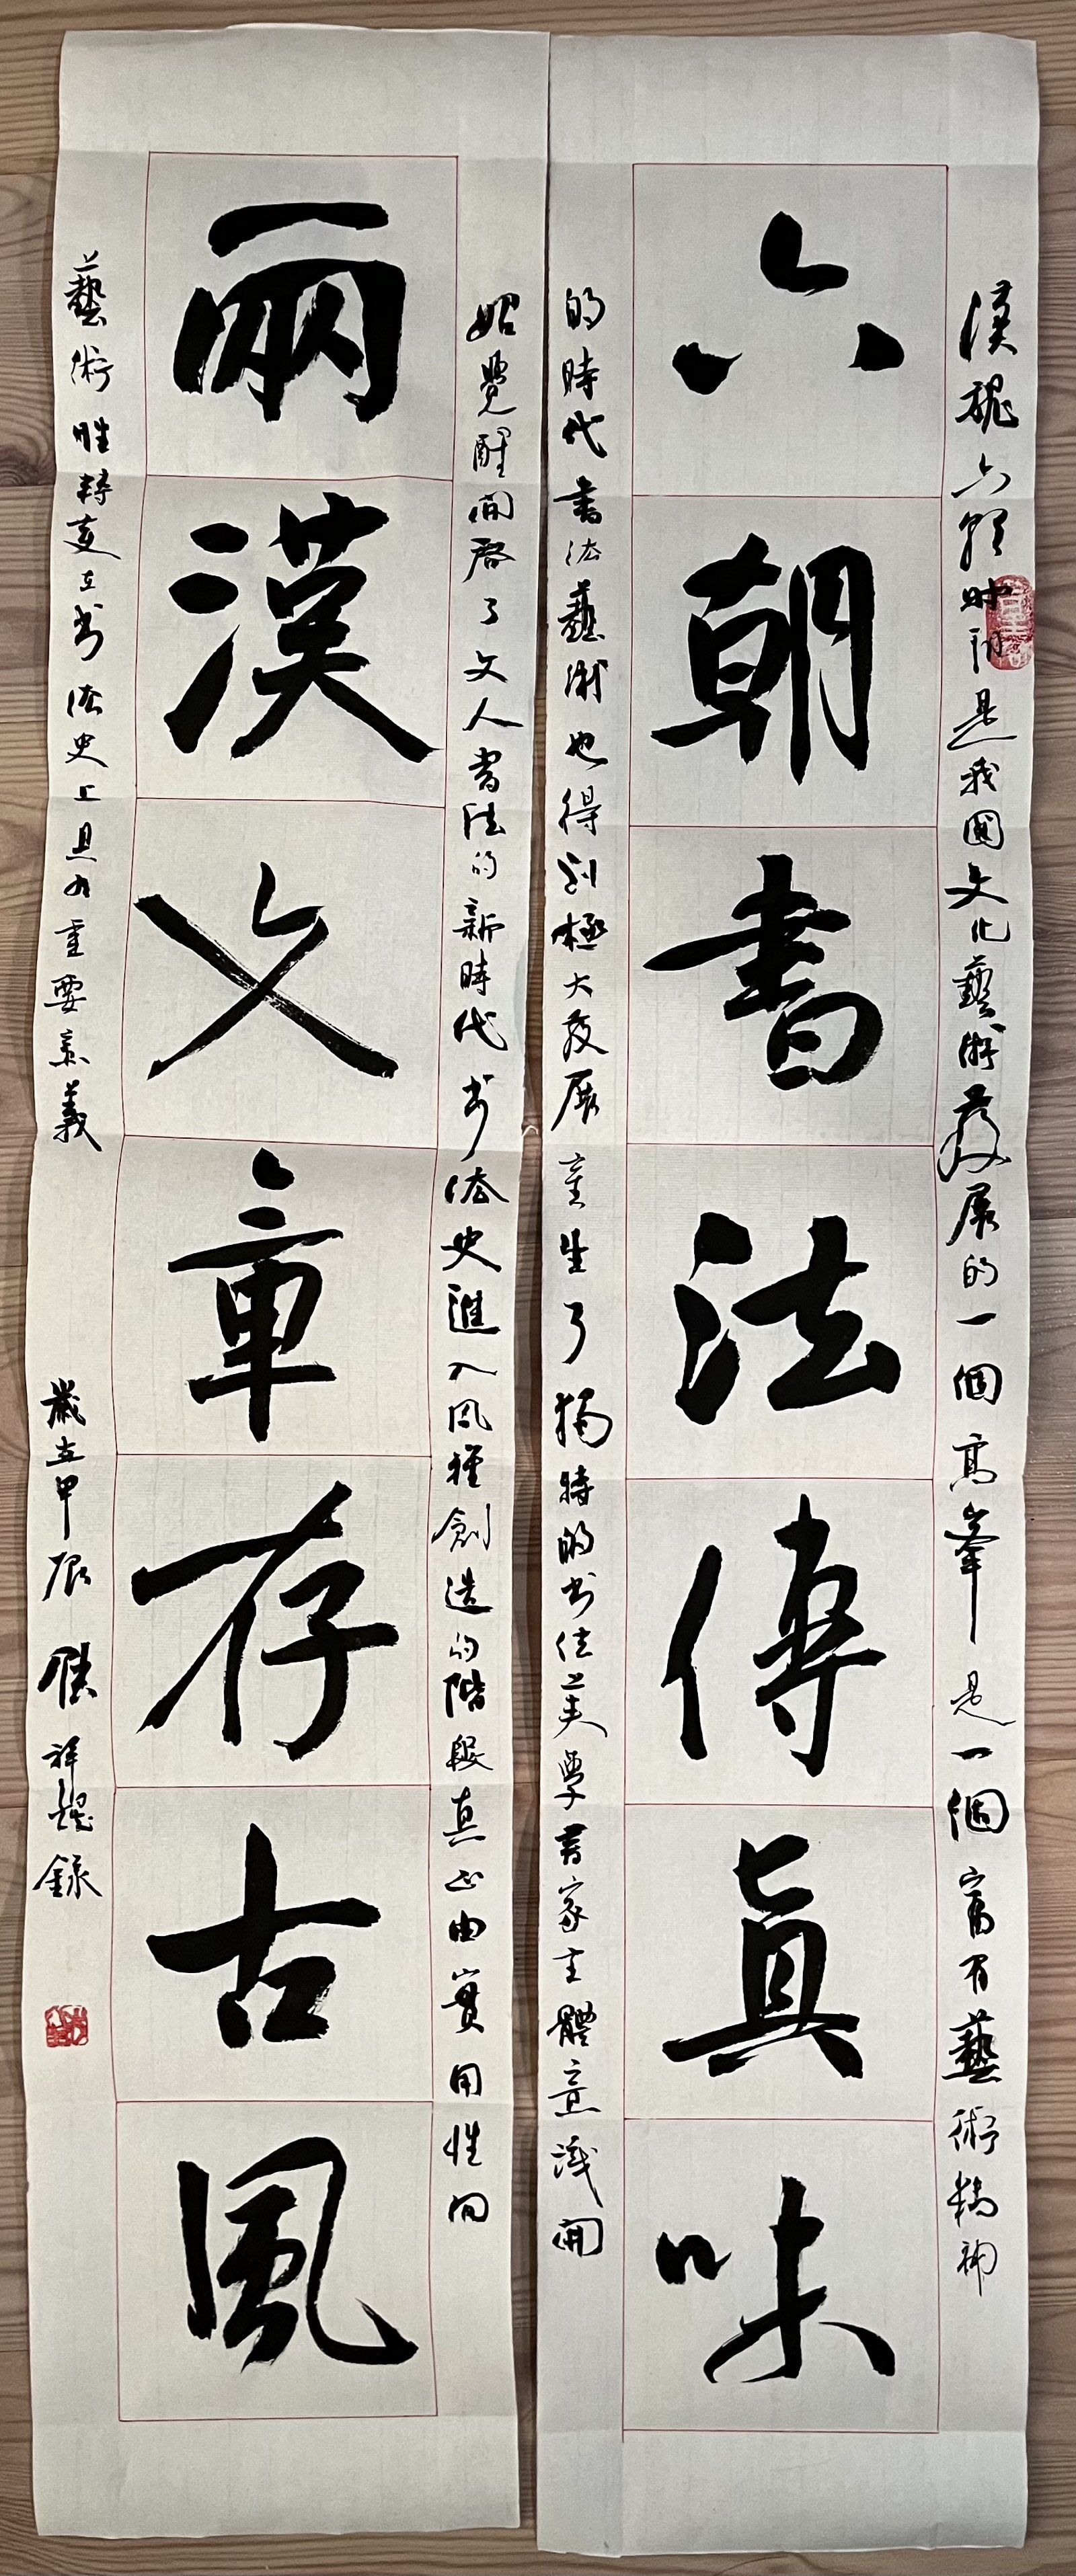 漢魏六朝時期是我國文化藝術發展的一個高峯是一個富有藝術精神
六朝書法傳真味
的時代書法藝術也得到極大發展產生了獨特的书法美學書家主體意識開
始覺醒開啓了文人書法的新時代书法史進入風格創造的階段真正由實用性向
兩漢文章存古風
藝術性轉變在书法史上具有重要意義
歲在甲辰 祥 錄